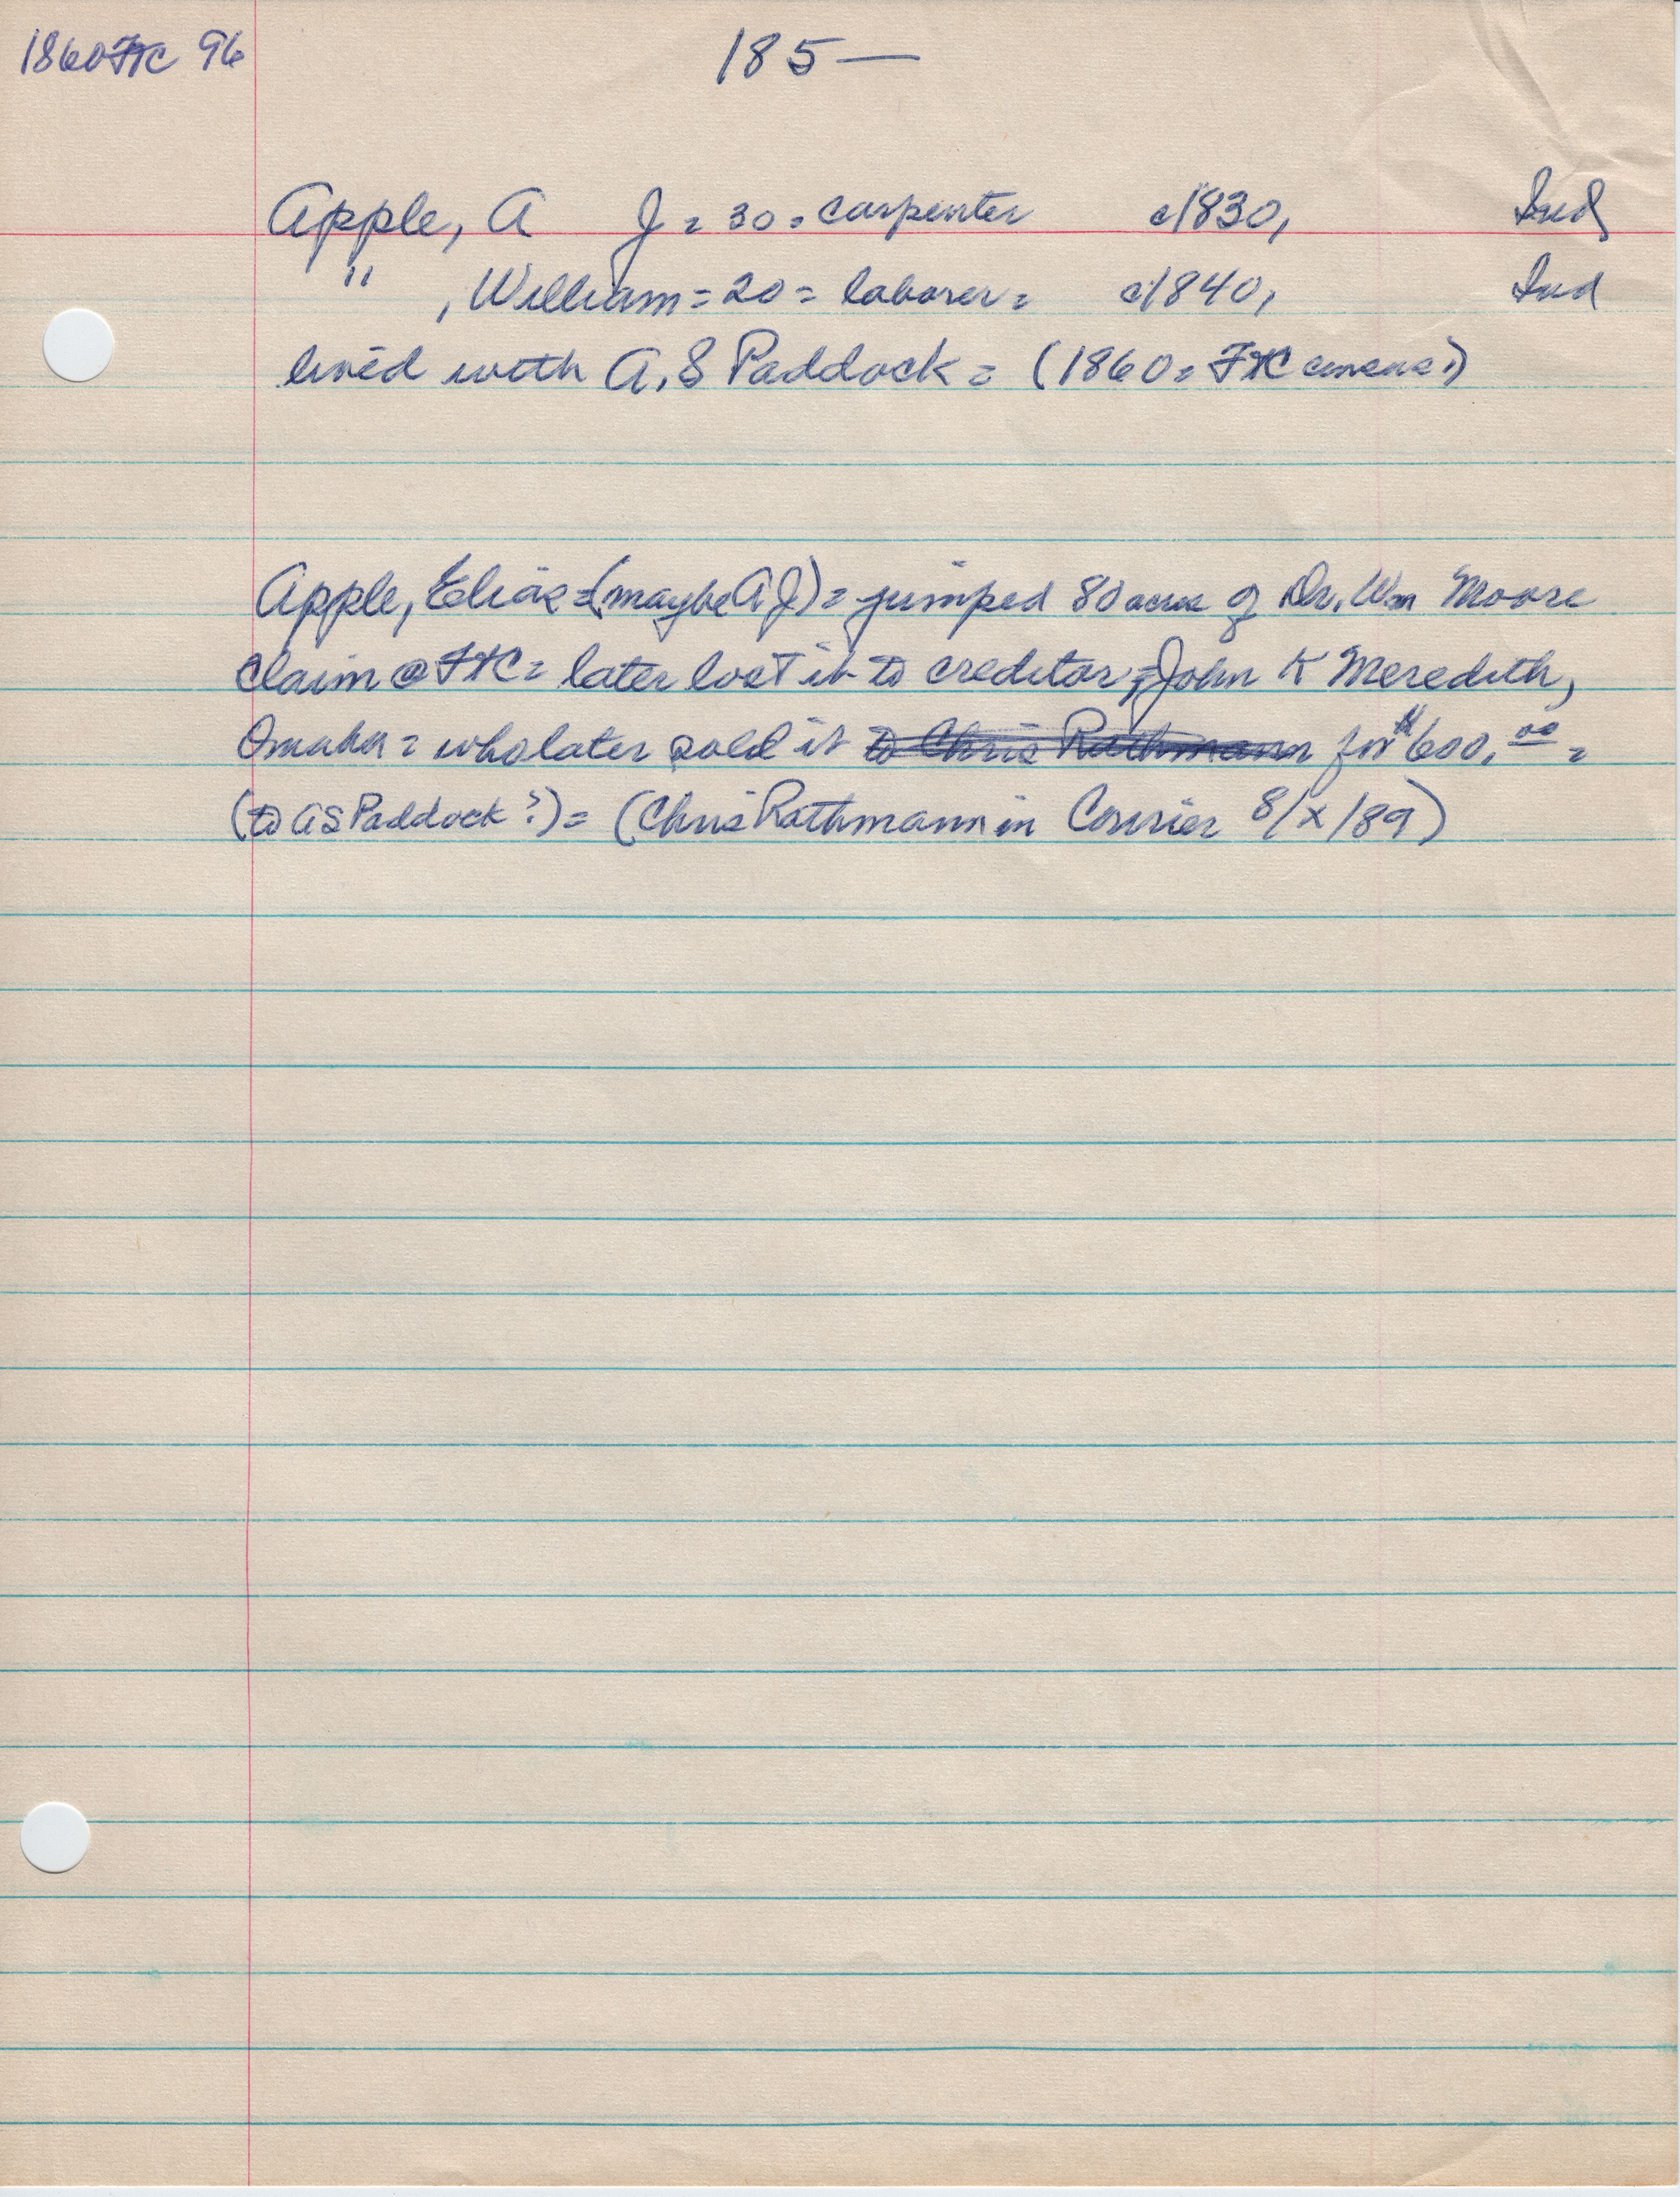 1860 FtC 96
185—
Apple, A J = 30 = carpenter c1830, Ind
" , William = 20 = laborer = c1840, Ind
lived with A. S Paddock = (1860 = FtC census?)
Apple, Elias = (maybe A J) = jumped 80 acres of Dr. Wm Moore
claim @ FtC = later lost it to creditor, = John K Meredith,
Omaha = who later sold it to Chris Rathmann for $600.00 =
(to AS Paddock?) = (Chris Rathmann in Courier 8/x/89)